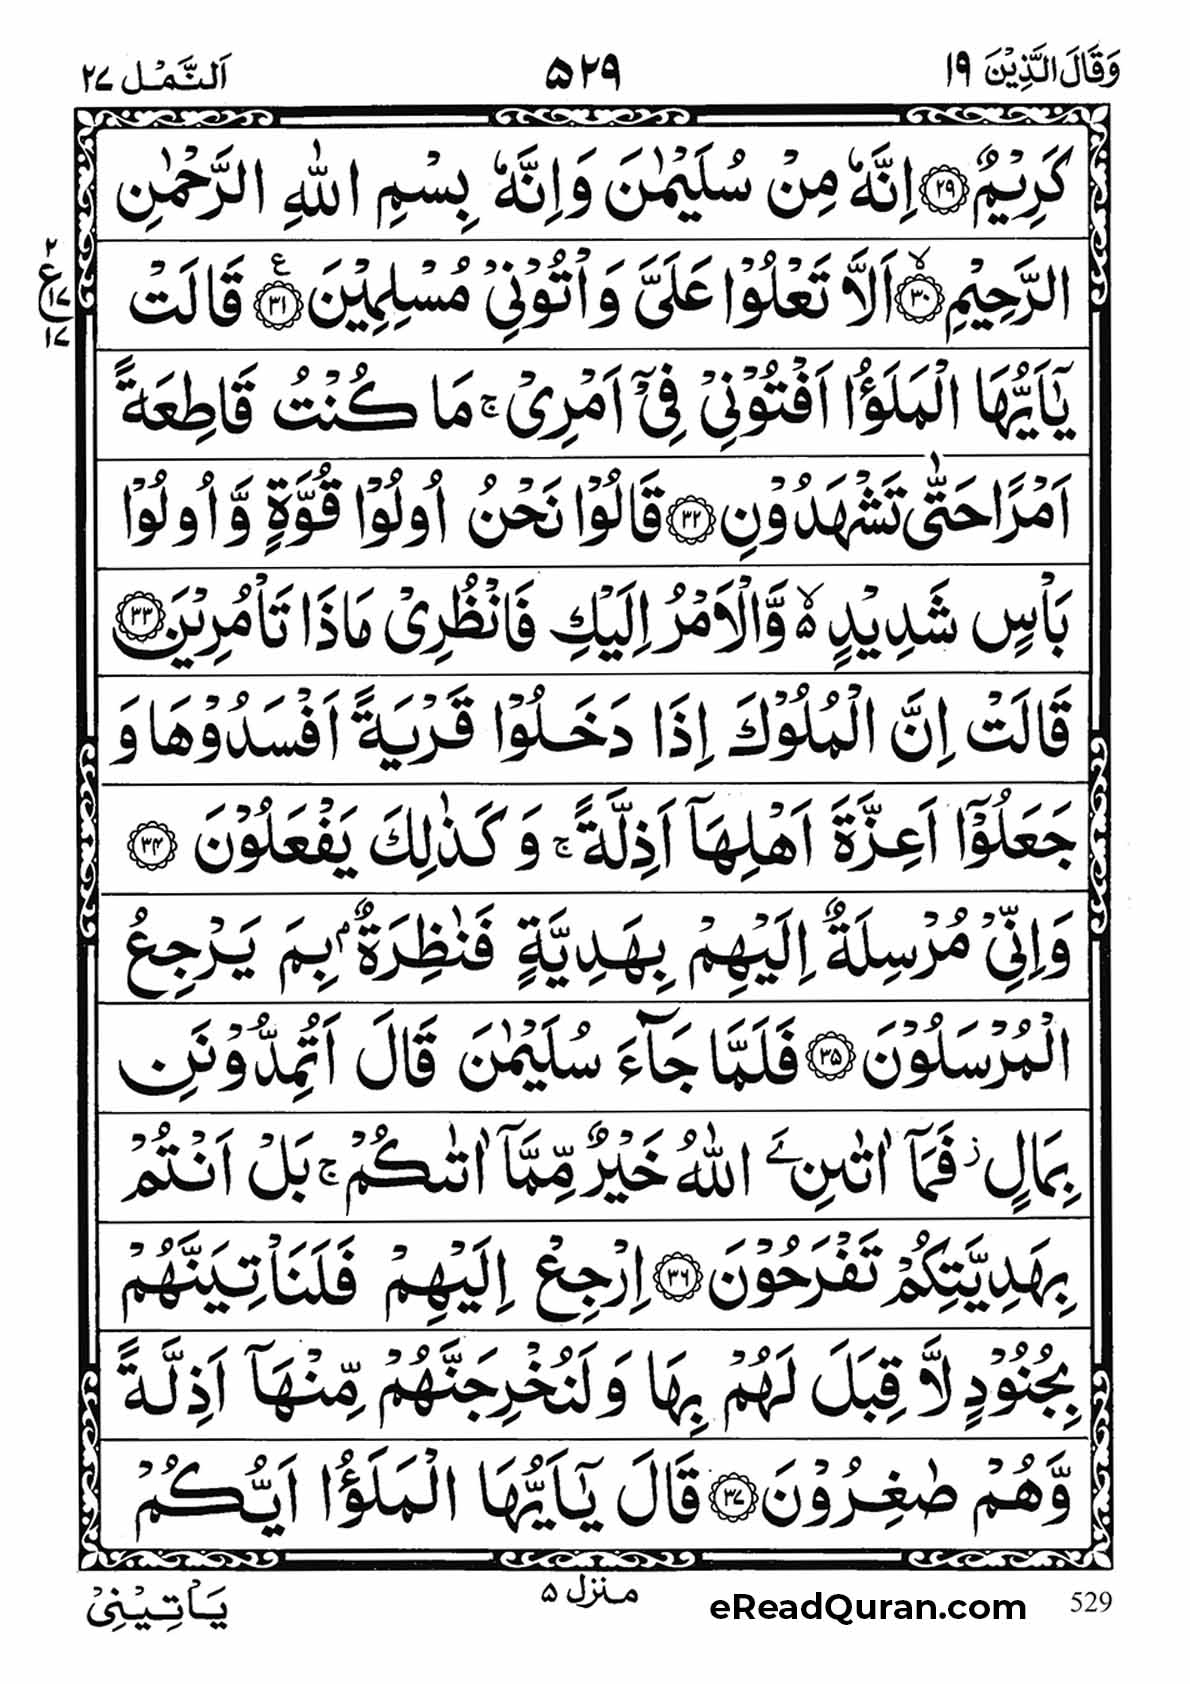 وَقَالَ الَّذِيْنَ ١٩ ۵۲۹ اَلنَّمْل ٢٧
كَرِيْمٌ ﴿۲۹﴾ اِنَّهٗ مِنْ سُلَيْمٰنَ وَاِنَّهٗ بِسْمِ اللّٰهِ الرَّحْمٰنِ
الرَّحِيْمِ ﴿۳۰﴾ۙ اَلَّا تَعْلُوْا عَلَيَّ وَاْتُوْنِيْ مُسْلِمِيْنَ ﴿۳۱﴾ع قَالَتْ
٢
ع
١٧
١٧
يٰۤاَيُّهَا الْمَلَؤُا اَفْتُوْنِيْ فِيْۤ اَمْرِيْ ۚ مَا كُنْتُ قَاطِعَةً
اَمْرًا حَتّٰى تَشْهَدُوْنِ ﴿۳۲﴾ قَالُوْا نَحْنُ اُولُوْا قُوَّةٍ وَّ اُولُوْا
بَاْسٍ شَدِيْدٍ ۙ۬ وَّالْاَمْرُ اِلَيْكِ فَانْظُرِيْ مَاذَا تَاْمُرِيْنَ ﴿۳۳﴾
قَالَتْ اِنَّ الْمُلُوْكَ اِذَا دَخَلُوْا قَرْيَةً اَفْسَدُوْهَا وَ
جَعَلُوْۤا اَعِزَّةَ اَهْلِهَاۤ اَذِلَّةً ۚ وَ كَذٰلِكَ يَفْعَلُوْنَ ﴿۳۴﴾
وَاِنِّيْ مُرْسِلَةٌ اِلَيْهِمْ بِهَدِيَّةٍ فَنٰظِرَةٌۢ بِمَ يَرْجِعُ
الْمُرْسَلُوْنَ ﴿۳۵﴾ فَلَمَّا جَآءَ سُلَيْمٰنَ قَالَ اَتُمِدُّوْنَنِ
بِمَالٍ ؗ فَمَاۤ اٰتٰىنِۦَ اللّٰهُ خَيْرٌ مِّمَّاۤ اٰتٰىكُمْ ۚ بَلْ اَنْتُمْ
بِهَدِيَّتِكُمْ تَفْرَحُوْنَ ﴿۳۶﴾ اِرْجِعْ اِلَيْهِمْ فَلَنَاْتِيَنَّهُمْ
بِجُنُوْدٍ لَّا قِبَلَ لَهُمْ بِهَا وَلَنُخْرِجَنَّهُمْ مِّنْهَاۤ اَذِلَّةً
وَّهُمْ صٰغِرُوْنَ ﴿۳۷﴾ قَالَ يٰۤاَيُّهَا الْمَلَؤُا اَيُّكُمْ
529 eReadQuran.com منزل ۵ يَاْتِيْنِيْ